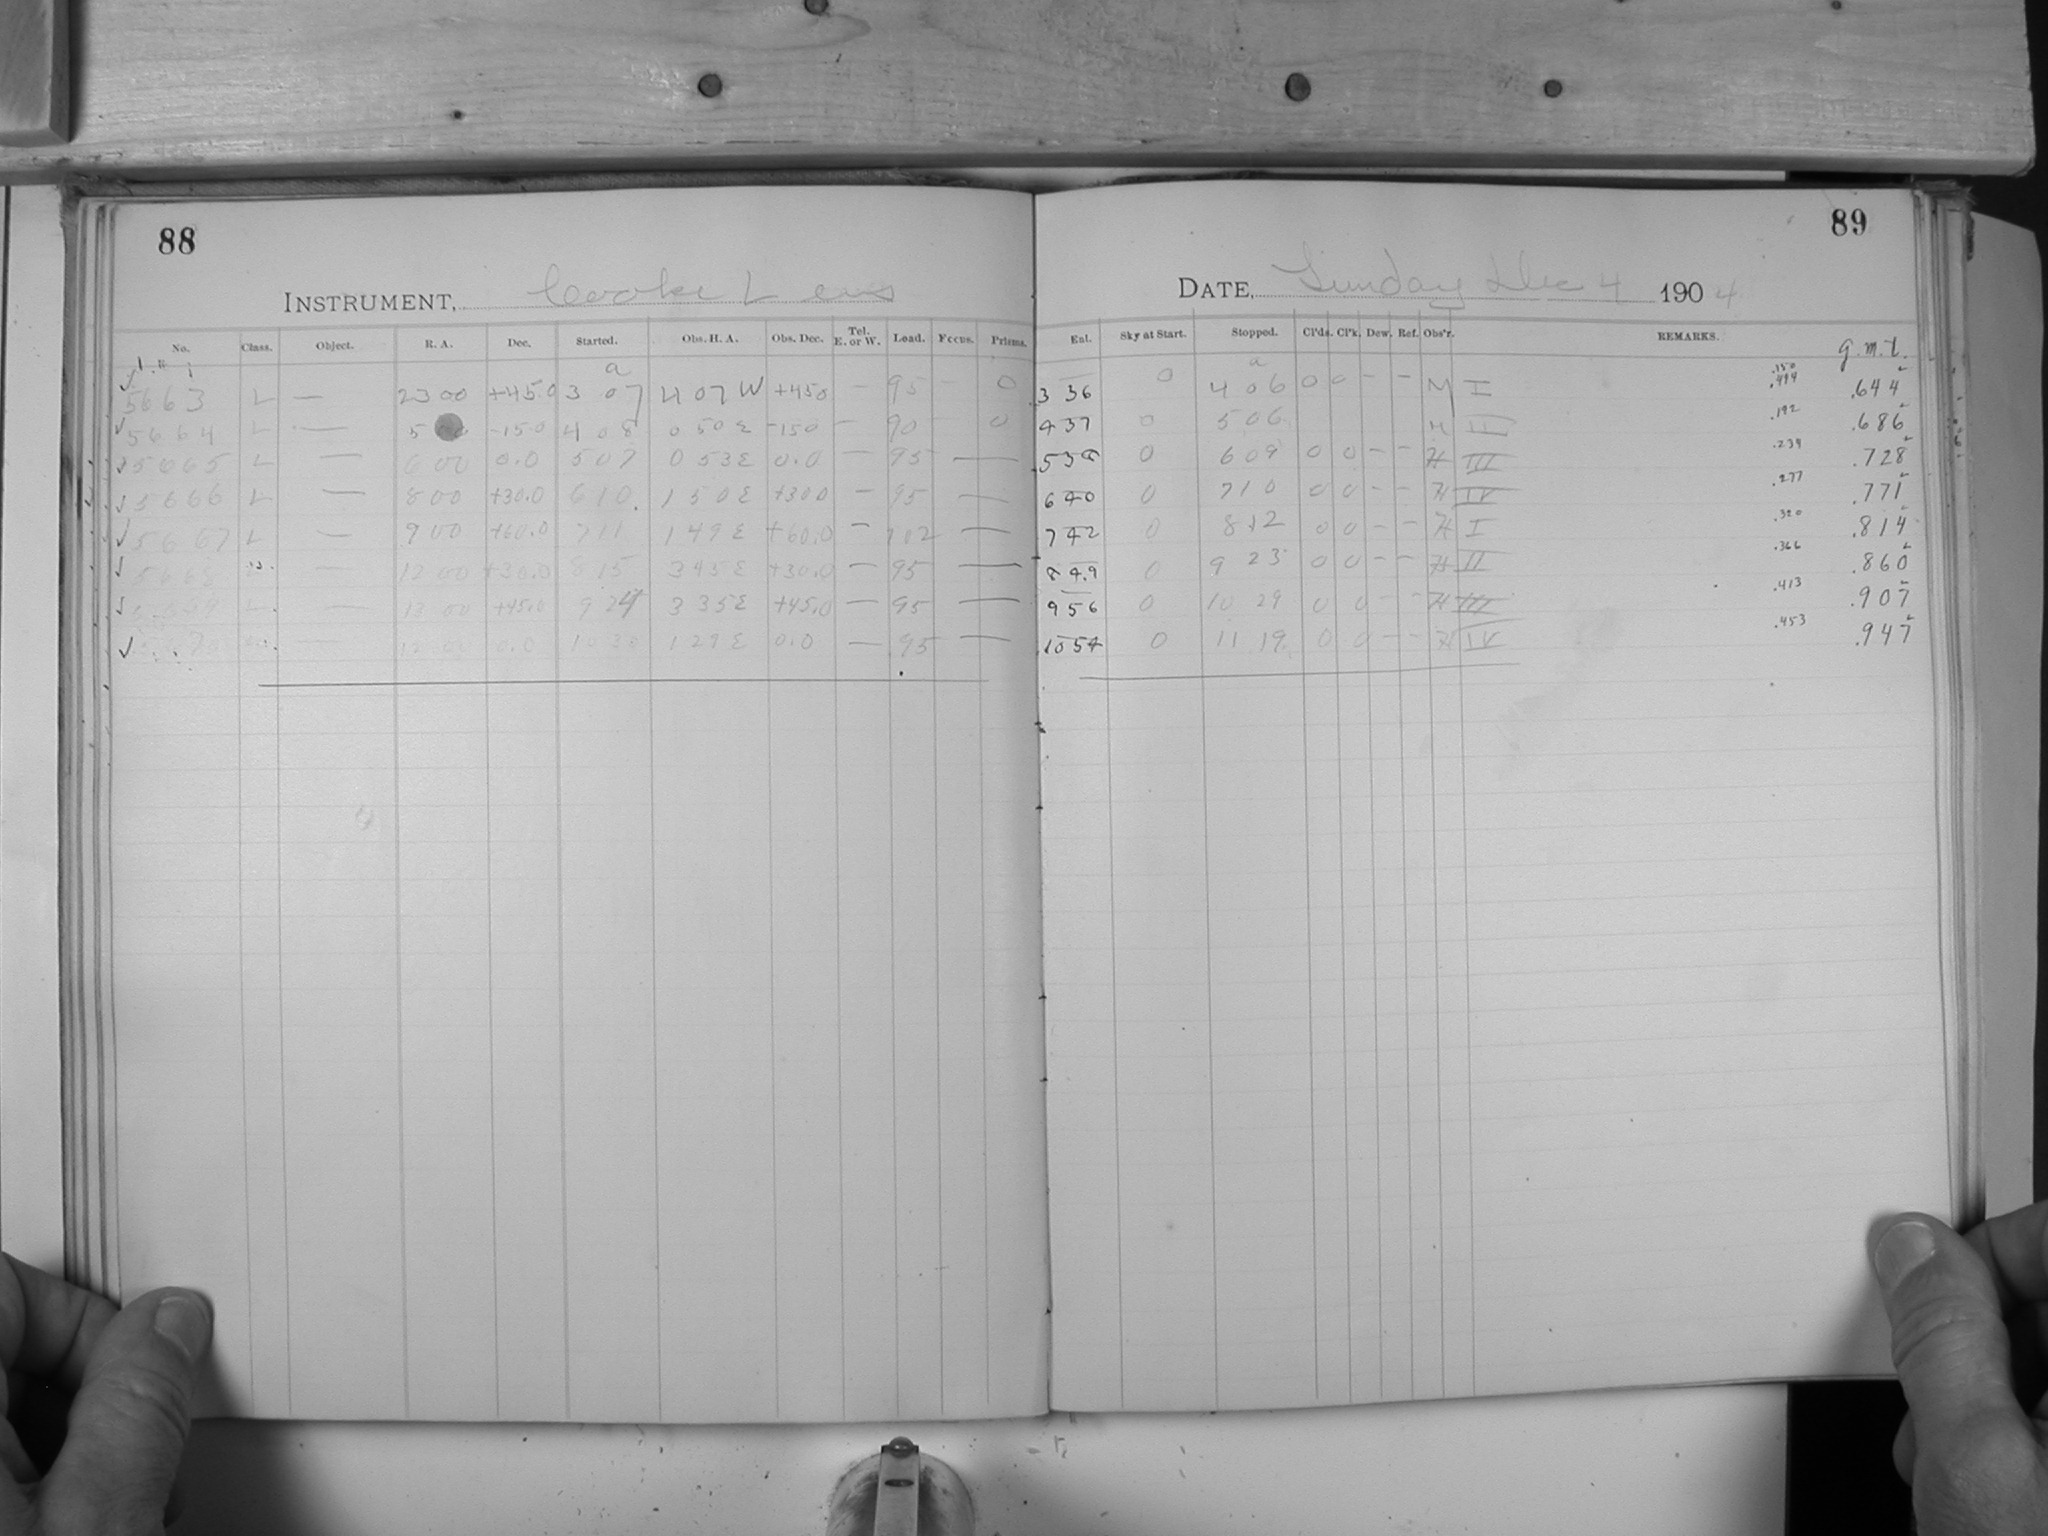 88
INSTRUMENT, Cooke Lens
No. Class. Object. R. A. Dec. Started. Obs. H. A. Obs. Dec. Tel. E. or W. Load. Focus. Prisms.
a
✓ 5663 L — 23 00 +45.0 3 07 4 07 W +45.0 — 95 - 0
✓ 5664 L — 5 -15.0 4 08 0 50 E -15.0 — 90 0
✓ 5665 L — 6 00 0.0 5 07 0 53 E 0.0 — 95 —
✓ 5666 L — 8 00 +30.0 6 10 1 50 E +30.0 — 95 —
✓ 5667 L — 9 00 +60.0 7 11 1 49 E +60.0 — 102 —
✓ 5668 — 12 00 +30.0 8 15 3 45 E +30.0 — 95 —
✓ L — 13 00 +45.0 9 24 3 35 E +45.0 — 95 —
✓ — 12 00 0.0 10 30 1 29 E 0.0 — 95 —
89
DATE, Sunday Dec 4 1904
Eal. Sky at Start. Stopped. Cl'ds. Cl'k. Dew. Ref. Obs'r. REMARKS. g.m.t.
a
3 36 0 4 06 0 0 - - M I .150 .494 .644
4 37 0 5 06 H II .192 .686
5 38 0 6 09 0 0 - - H III .234 .728
6 40 0 7 10 0 0 - - H IV .277 .771
7 42 0 8 12 0 0 - - H I .320 .814
8 49 0 9 23 0 0 - - H II .366 .860
9 56 0 10 29 0 0 - - H III .413 .907
10 54 0 11 19 0 0 - - H IV .453 .947